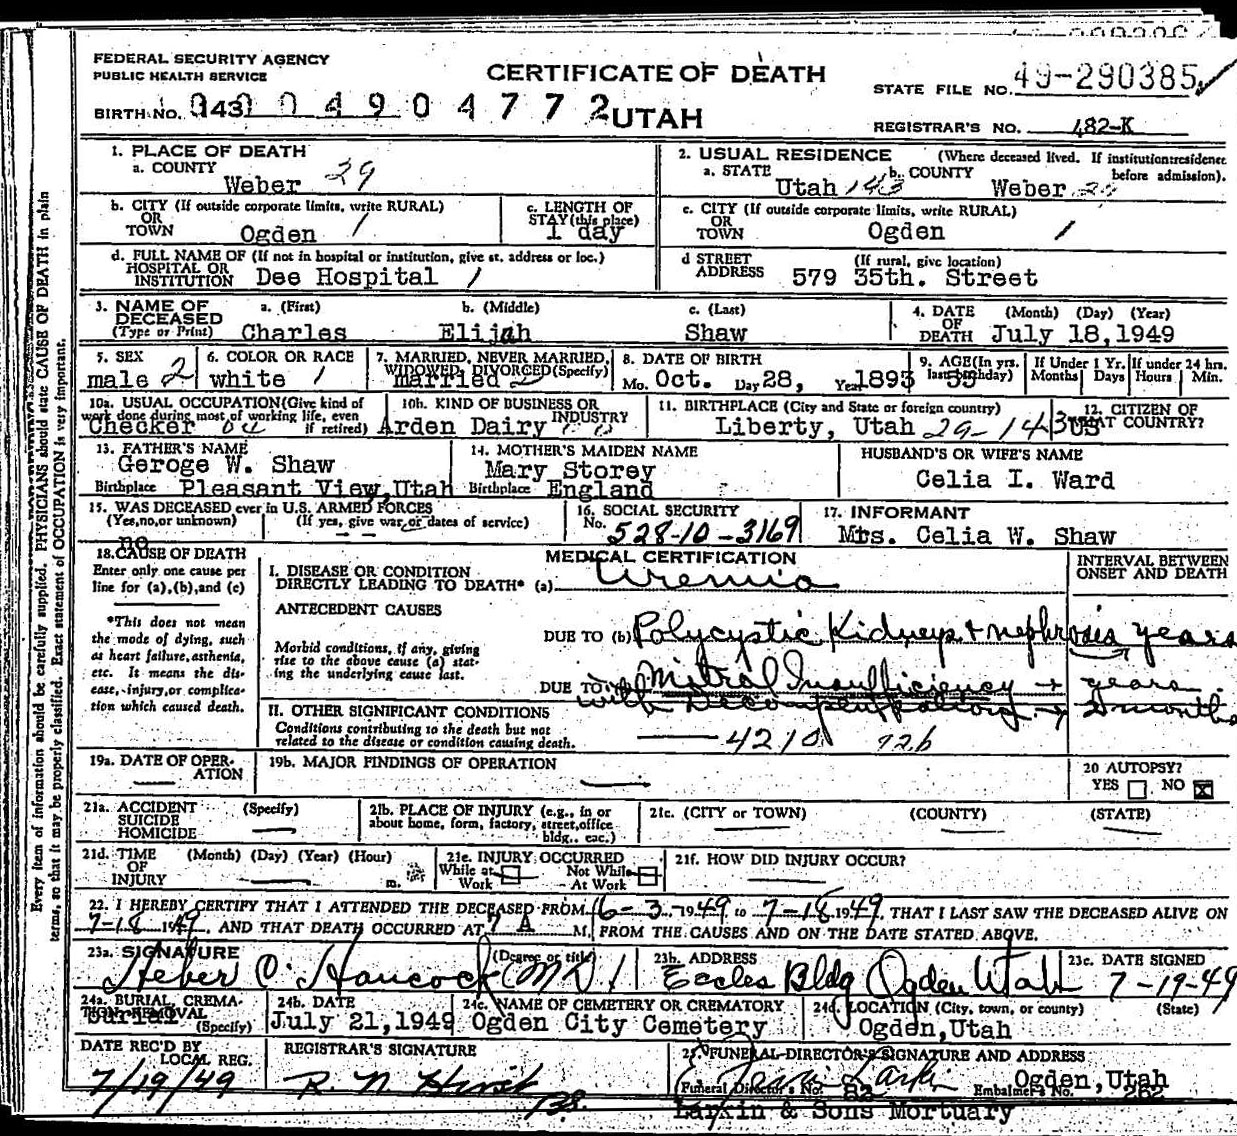 FEDERAL SECURITY AGENCY
PUBLIC HEALTH SERVICE
CERTIFICATE OF DEATH
STATE FILE NO. 49-290385
BIRTH NO. 143 0 0 4 9 0 4 7 7 2 UTAH
REGISTRAR'S NO. 482-K
1. PLACE OF DEATH
a. COUNTY
Weber 29
2. USUAL RESIDENCE (Where deceased lived. If institution:residence before admission).
a. STATE b. COUNTY
Utah 143 Weber 29
b. CITY (If outside corporate limits, write RURAL)
OR
TOWN Ogden 1
c. LENGTH OF
STAY (this place)
1 day
c. CITY (If outside corporate limits, write RURAL)
OR
TOWN Ogden 1
d. FULL NAME OF (If not in hospital or institution, give st. address or loc.)
HOSPITAL OR
INSTITUTION Dee Hospital 1
d STREET (If rural, give location)
ADDRESS 579 35th. Street
3. NAME OF
DECEASED
(Type or Print)
a. (First) b. (Middle) c. (Last)
Charles Elijah Shaw
4. DATE (Month) (Day) (Year)
OF
DEATH July 18,1949
5. SEX
male 2
6. COLOR OR RACE
white 1
7. MARRIED, NEVER MARRIED,
WIDOWED, DIVORCED (Specify)
married 2
8. DATE OF BIRTH
Mo. Oct. Day 28, Year 1893
9. AGE (In yrs.
last birthday)
55
If Under 1 Yr.
Months Days
If under 24 hrs.
Hours Min.
10a. USUAL OCCUPATION (Give kind of
work done during most of working life, even
if retired)
Checker
10b. KIND OF BUSINESS OR
INDUSTRY
Arden Dairy
11. BIRTHPLACE (City and State or foreign country)
Liberty, Utah 29-143
12. CITIZEN OF
WHAT COUNTRY?
US
13. FATHER'S NAME
Geroge W. Shaw
Birthplace Pleasant View,Utah
14. MOTHER'S MAIDEN NAME
Mary Storey
Birthplace England
HUSBAND'S OR WIFE'S NAME
Celia I. Ward
15. WAS DECEASED ever in U.S. ARMED FORCES
(Yes,no,or unknown) (If yes, give war or dates of service)
no
16. SOCIAL SECURITY
No. 528-10-3169
17. INFORMANT
Mrs. Celia W. Shaw
18. CAUSE OF DEATH
Enter only one cause per
line for (a),(b),and (c)
*This does not mean
the mode of dying, such
as heart failure,asthenia,
etc. It means the dis-
ease, injury,or complica-
tion which caused death.
MEDICAL CERTIFICATION
INTERVAL BETWEEN
ONSET AND DEATH
I. DISEASE OR CONDITION
DIRECTLY LEADING TO DEATH* (a) Uremia
ANTECEDENT CAUSES
Morbid conditions, if any, giving
rise to the above cause (a) stat-
ing the underlying cause last.
DUE TO (b) Polycystic Kidneys + nephrosis years
DUE TO Mitral Insufficiency → years
with Decompensation → 2 months
II. OTHER SIGNIFICANT CONDITIONS
Conditions contributing to the death but not
related to the disease or condition causing death.
4210 92b
19a. DATE OF OPER-
ATION
19b. MAJOR FINDINGS OF OPERATION
20 AUTOPSY?
YES NO X
21a. ACCIDENT (Specify)
SUICIDE
HOMICIDE
21b. PLACE OF INJURY (e.g., in or
about home, form, factory, street,office
bldg., eac.)
21c. (CITY or TOWN) (COUNTY) (STATE)
21d. TIME (Month) (Day) (Year) (Hour)
OF
INJURY m.
21e. INJURY OCCURRED
While at
Work
Not While
At Work
21f. HOW DID INJURY OCCUR?
22. I HEREBY CERTIFY THAT I ATTENDED THE DECEASED FROM 6-3-1949 to 7-18 1949, THAT I LAST SAW THE DECEASED ALIVE ON
7-18 1949, AND THAT DEATH OCCURRED AT 7 A M. FROM THE CAUSES AND ON THE DATE STATED ABOVE.
23a. SIGNATURE (Degree or title)
Heber C. Hancock (MD)
23b. ADDRESS
Eccles Bldg Ogden Utah
23c. DATE SIGNED
7-19-49
24a. BURIAL, CREMA-
TION, REMOVAL
(Specify)
Burial
24b. DATE
July 21,1949
24c. NAME OF CEMETERY OR CREMATORY
Ogden City Cemetery
24d. LOCATION (City, town, or county) (State)
Ogden,Utah
DATE REC'D BY
LOCAL REG.
7/19/49
REGISTRAR'S SIGNATURE
138
25. FUNERAL DIRECTOR'S SIGNATURE AND ADDRESS
Larkin Ogden,Utah
(Funeral Director's No. 82 Embalmer's No. 262
Larkin & Sons Mortuary
Every item of information should be carefully supplied. PHYSICIANS should state CAUSE OF DEATH in plain
terms, so that it may be properly classified. Exact statement of OCCUPATION is very important.